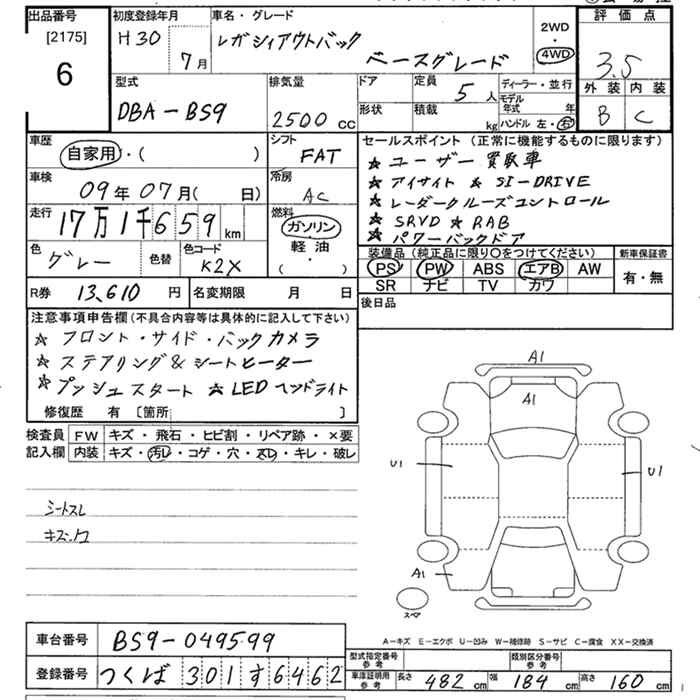 出品番号 初度登録年月 車名・グレード 2WD・4WD 評価点
[2175] H30 7月 レガシィアウトバック ベースグレード 3.5
6
型式 排気量 ドア 定員 5人 ディーラー・並行 外装 内装
DBA-BS9 2500cc 形状 積載 kg モデル年式 年 B C
ハンドル 左・右
車歴 シフト セールスポイント(正常に機能するものに限ります)
自家用・( ) FAT ★ユーザー買取車
車検 冷房 ★アイサイト ★SI-DRIVE
09年07月( 日) AC ★レーダークルーズコントロール
走行 燃料 ★SRVD ★RAB
17万1千659km ガソリン ★パワーバックドア
色 グレー 色替 色コード K2X 軽油・( )
装備品(純正品に限り○をつけてください) 新車保証書
PS PW ABS エアB AW 有・無
SR ナビ TV カワ
R券 13,610円 名変期限 月 日 後日品
注意事項申告欄(不具合内容等は具体的に記入して下さい)
★フロント・サイド・バックカメラ
★ステアリング&シートヒーター
★プッシュスタート ★LEDヘッドライト
修復歴 有 [箇所 ]
検査員 FW キズ・飛石・ヒビ割・リペア跡・×要
記入欄 内装 キズ・汚レ・コゲ・穴・スレ・キレ・破レ
シートスレ
A1
A1
U1 U1
A1
スペア
A-キズ E-エクボ U-凹み W-補修跡 S-サビ C-腐食 XX-交換済
車台番号 BS9-049599 型式指定番号 参考 類別区分番号 参考
登録番号 つくば 301 す 6462 車庫証明用 参考 長さ 482cm 幅 184cm 高さ 160cm